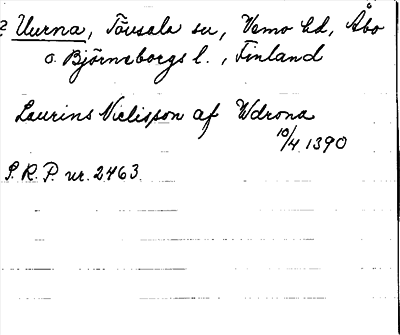 ? Uurna, Tövsala sn, Vemo hd, Åbo
o. Björneborgs l., Finland
Laurins Niclisson af Wdrona
10/4 1390
S.R.P. nr. 2463.